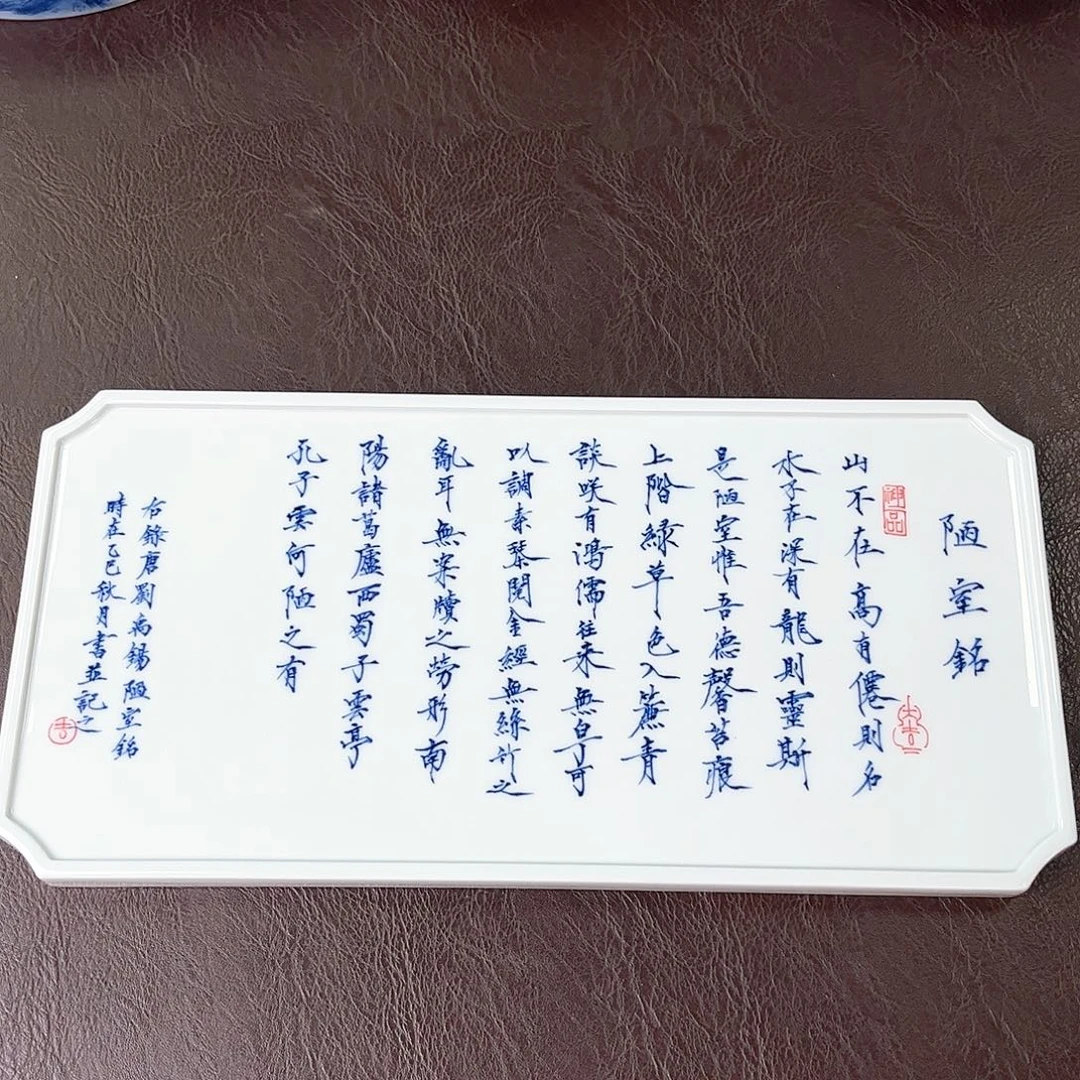 陋室銘
山不在高有僊則名
水不在深有龍則靈斯
是陋室惟吾德馨苔痕
上階綠草色入簾青
談咲有鴻儒往來無白丁可
以調素琴閱金經無絲竹之
亂耳無案牘之勞形南
陽諸葛廬西蜀子雲亭
孔子雲何陋之有
右錄唐劉禹錫陋室銘
時在乙巳秋月書並記之